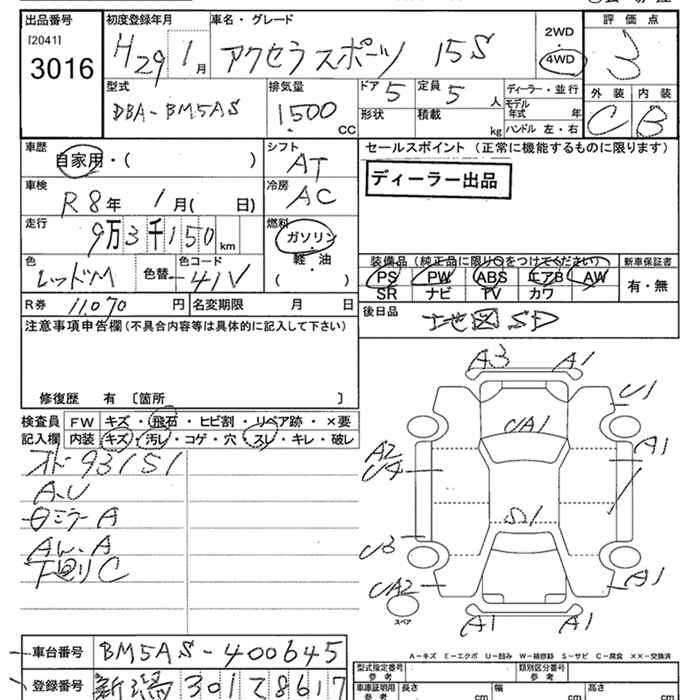 出品番号
[2041]
3016
初度登録年月
H29 1 月
車名・グレード
アクセラスポーツ 15S
2WD
4WD
評価点
3
型式
DBA-BM5AS
排気量
1500 CC
ドア 5
定員 5 人
形状
積載 kg
ディーラー・並行
モデル年式 年
ハンドル 左・右
外装 内装
C B
車歴
自家用・( )
シフト
AT
セールスポイント (正常に機能するものに限ります)
ディーラー出品
車検
R8年 1月( 日)
冷房
AC
走行
9万3千150 km
燃料
ガソリン
軽・油
( )
色
レッドM
色替
色コード
41V
装備品 (純正品に限り○をつけてください)
新車保証書
PS PW ABS エアB AW
SR ナビ TV カワ
有・無
R券 11,070 円
名変期限 月 日
後日品
地図SD
注意事項申告欄 (不具合内容等は具体的に記入して下さい)
修復歴 有 〔箇所 〕
検査員記入欄
FW キズ・飛石・ヒビ割・リペア跡・×要
内装 キズ・汚レ・コゲ・穴・スレ・キレ・破レ
オド93151
A.U
Aw.A
下回りC
A3 A1
U1
UA1
A2
U4
A1
S1
U3
UA2
A1
スペア
A1 A1
A-キズ E-エクボ U-凹み W-補修跡 S-サビ C-腐食 ××-交換済
車台番号 BM5AS-400645
登録番号 新潟 301 28617
型式指定番号 参考
類別区分番号 参考
車庫証明用 参考
長さ cm 幅 cm 高さ cm